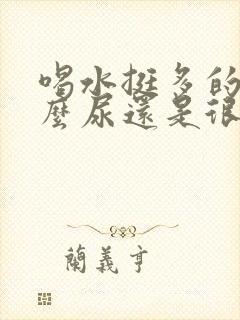 喝水挺多的
麼尿還是很
蘭義亨